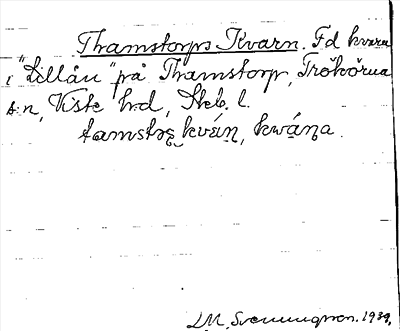 Thamstorps Kvarn. Fd kvarn
i "Lillån" på Thamstorp, Trökörna
s:n, Viste hd, Skb. l.
kván, kwána.
LM. Svenungsson. 1939.